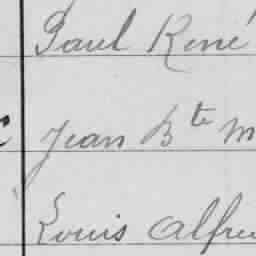 Paul René
Jean Bte M
Louis Alfre